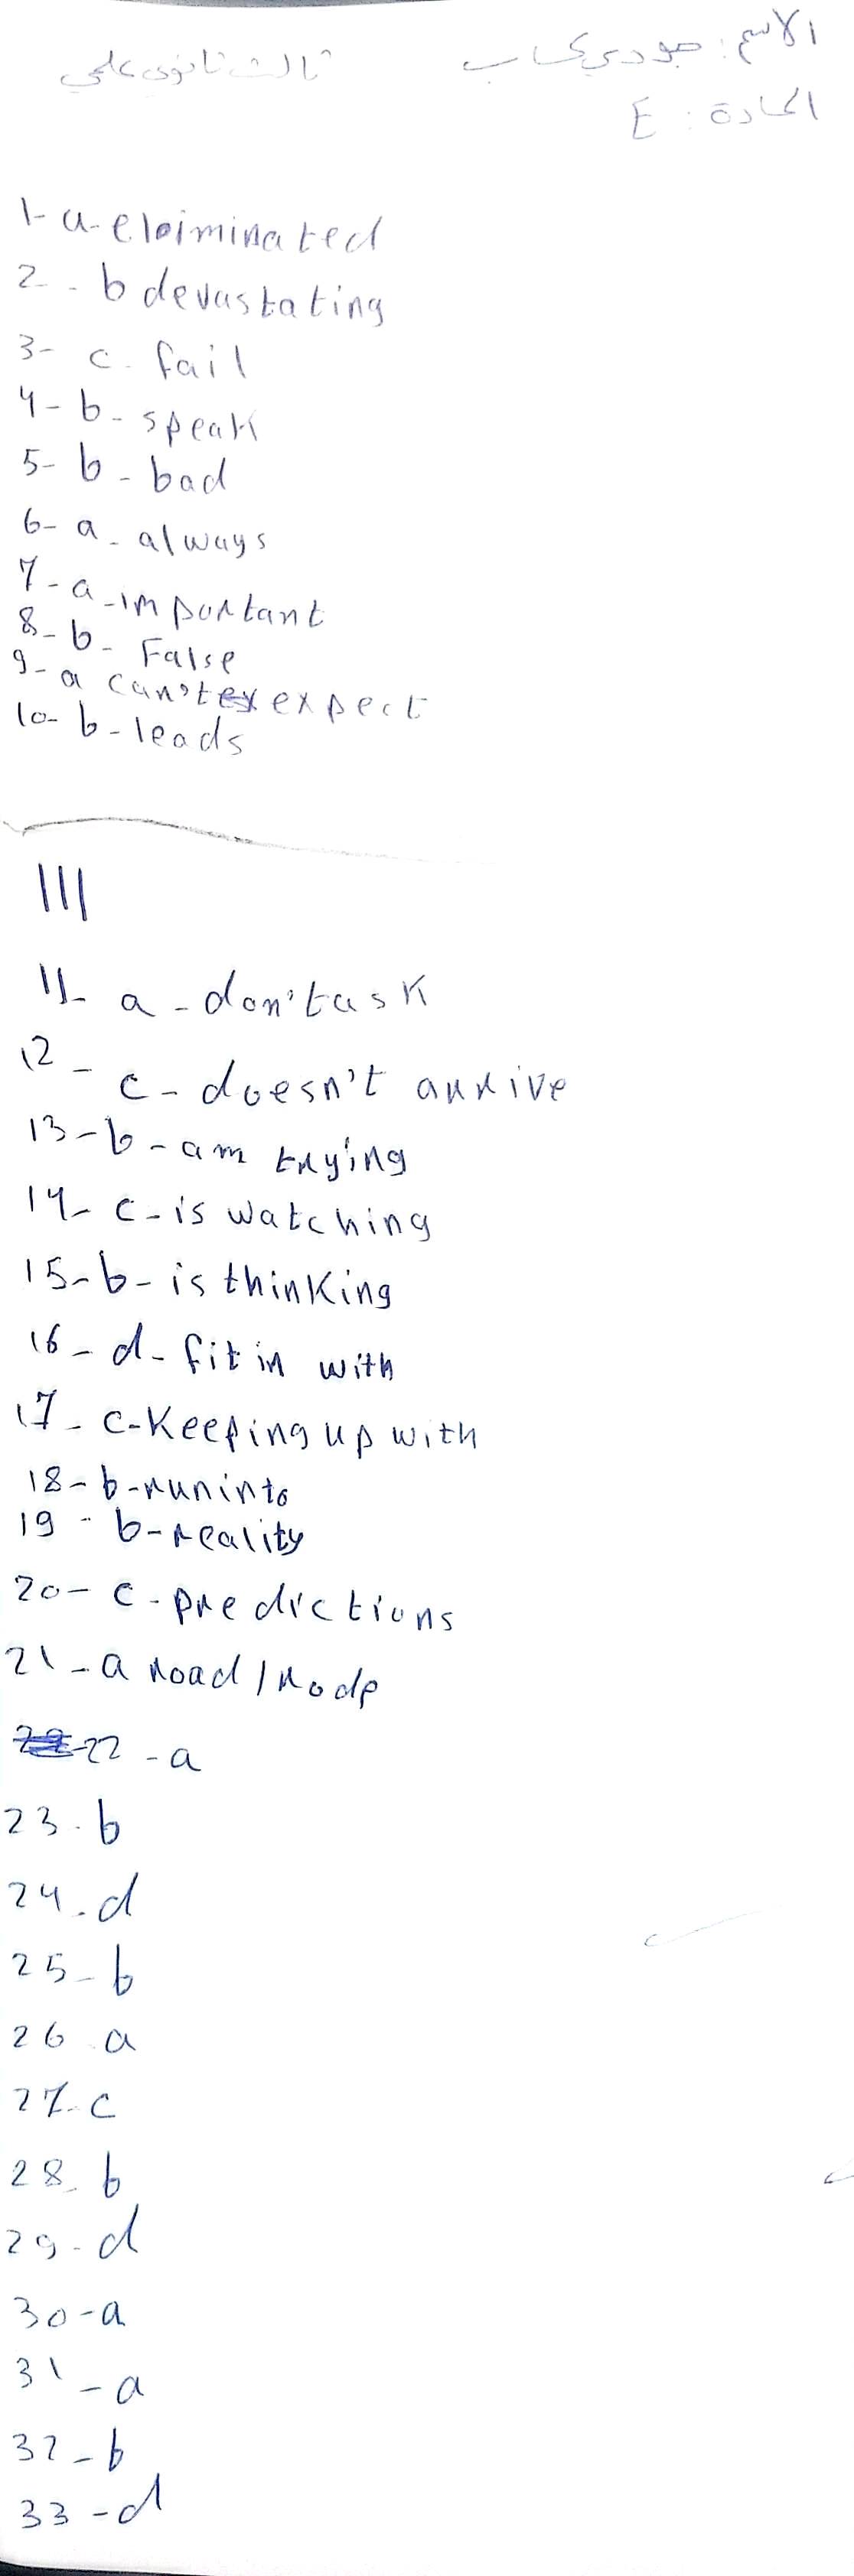 الاسم: جودي كساب
ثالث ثانوي علمي
المادة: E
1- a- eloiminated
2 - b devastating
3- c. fail
4- b- speak
5- b- bad
6- a- always
7- a- important
8- b- False
9- a can't expect
10- b- leads
III
11- a - don't ask
12 - c - doesn't arrive
13- b - am trying
14- c - is watching
15- b - is thinking
16- d- fit in with
17- c- Keeping up with
18- b- run into
19 - b- reality
20- c - predictions
21 - a road / rode
22 - a
23. b
24. d
25- b
26 a
27. c
28. b
29. d
30- a
31 - a
32 - b
33 - d